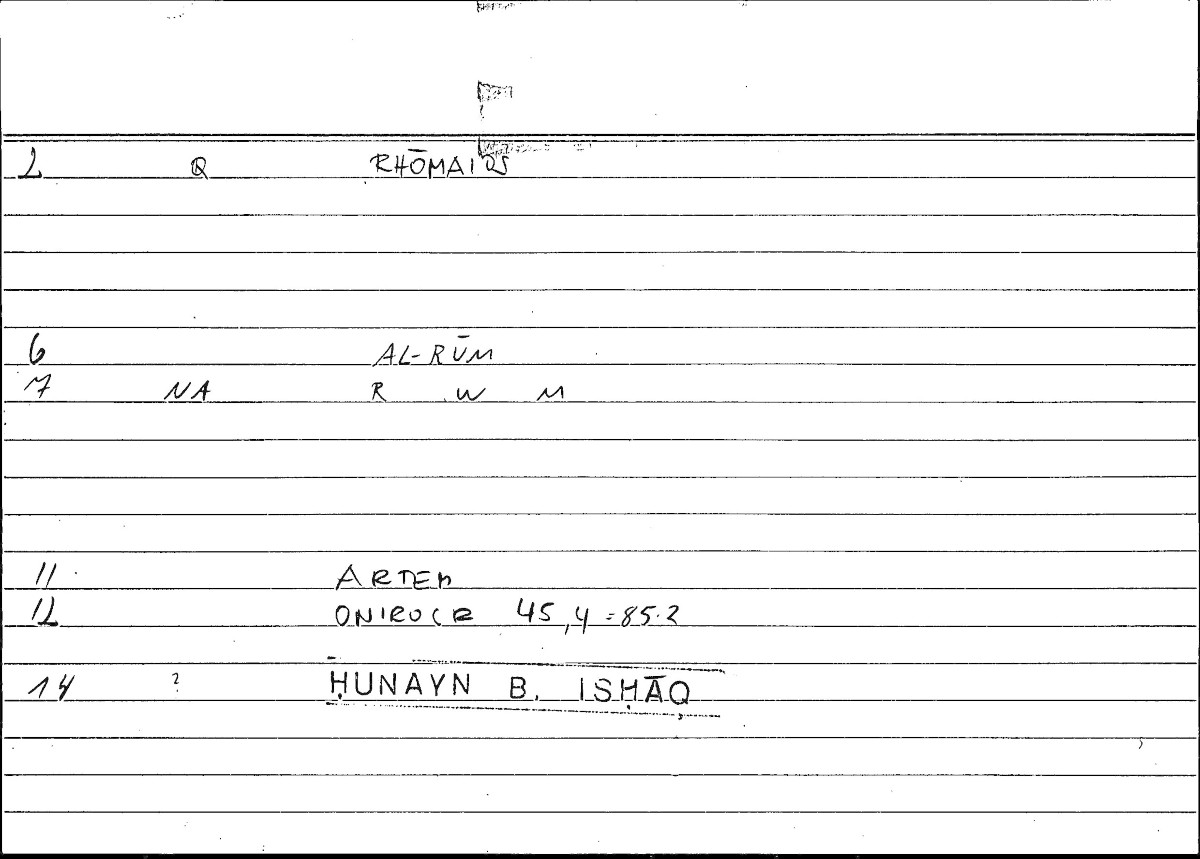 2 Q RHŌMAIOS
6 AL-RŪM
7 NA R W M
11 ARTEM
12 ONIROCR 45,4=85.2
14 ? ḤUNAYN B. ISḤĀQ